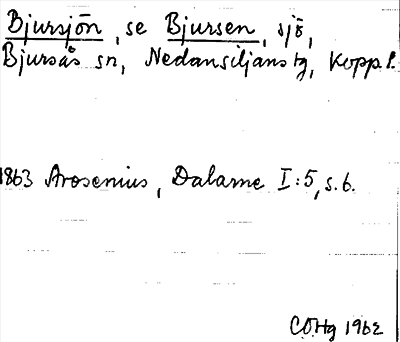 Bjursjön, se Bjursen, sjö,
Bjursås sn, Nedansiljans tg, Kopp. l.
1863 Arosenius, Dalarne I:5, s. 6.
COHg 1962